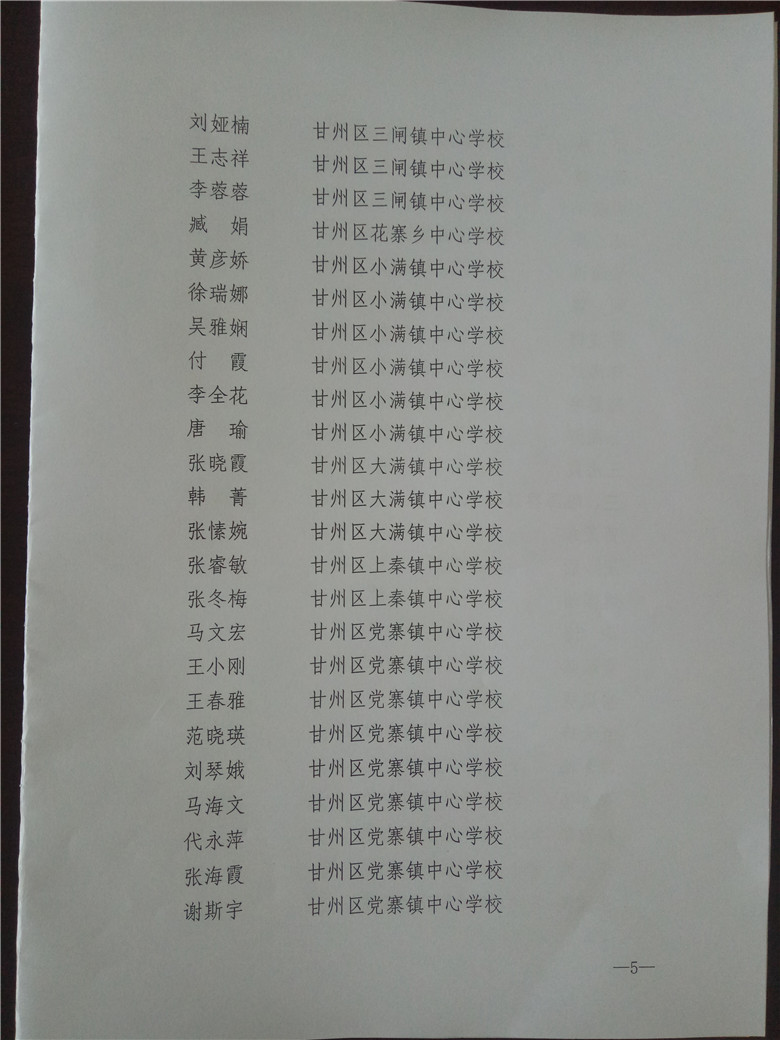 刘娅楠 甘州区三闸镇中心学校
王志祥 甘州区三闸镇中心学校
李蓉蓉 甘州区三闸镇中心学校
臧 娟 甘州区花寨乡中心学校
黄彦娇 甘州区小满镇中心学校
徐瑞娜 甘州区小满镇中心学校
吴雅娴 甘州区小满镇中心学校
付 霞 甘州区小满镇中心学校
李全花 甘州区小满镇中心学校
唐 瑜 甘州区小满镇中心学校
张晓霞 甘州区大满镇中心学校
韩 菁 甘州区大满镇中心学校
张愫婉 甘州区大满镇中心学校
张睿敏 甘州区上秦镇中心学校
张冬梅 甘州区上秦镇中心学校
马文宏 甘州区党寨镇中心学校
王小刚 甘州区党寨镇中心学校
王春雅 甘州区党寨镇中心学校
范晓瑛 甘州区党寨镇中心学校
刘琴娥 甘州区党寨镇中心学校
马海文 甘州区党寨镇中心学校
代永萍 甘州区党寨镇中心学校
张海霞 甘州区党寨镇中心学校
谢斯宇 甘州区党寨镇中心学校
—5—